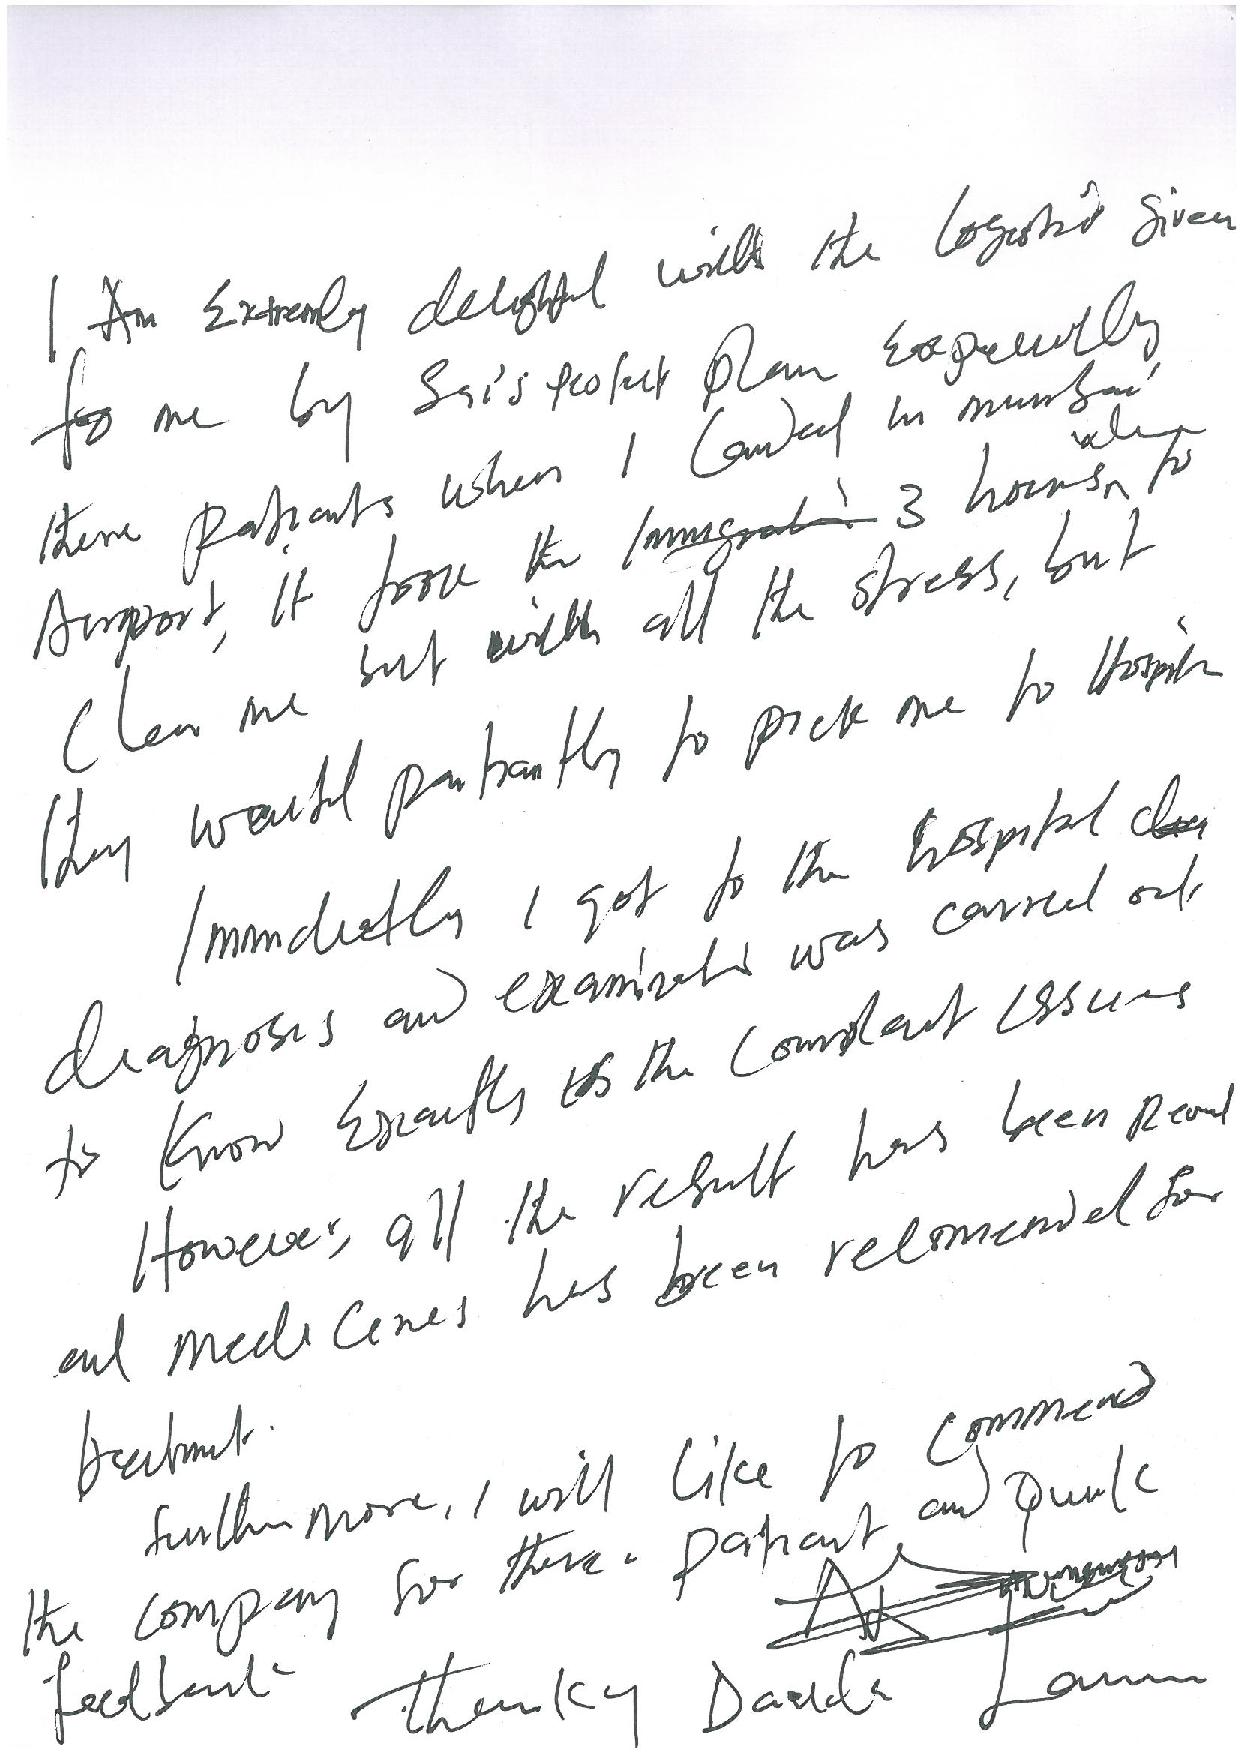 I Am Extremly delightful with the logistic given
for me by Sai's plan especially
there patients when I landed in mumbai
Airport, it took the Immigrati 3 hours when to
Clear me but with all the stress, but
they waited patiantly to pick me to Hospital
Immdiatly I got to the hospital
diagnosis and examinati was carried out
to know Exactly the complaint issues
However, all the result has been
and medicines has been recomended for
treatment.
Furthermore, I will like to commend
the company for there patient and quick
feedback Thanks Dauda